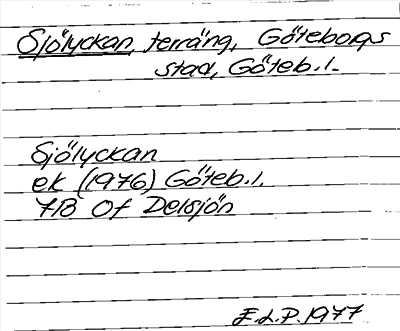 Sjölyckan, terräng, Göteborgs
stad, Göteb.l.
Sjölyckan
ek (1976) Göteb.l.
7B Of Delsjön
E.L.P. 1977